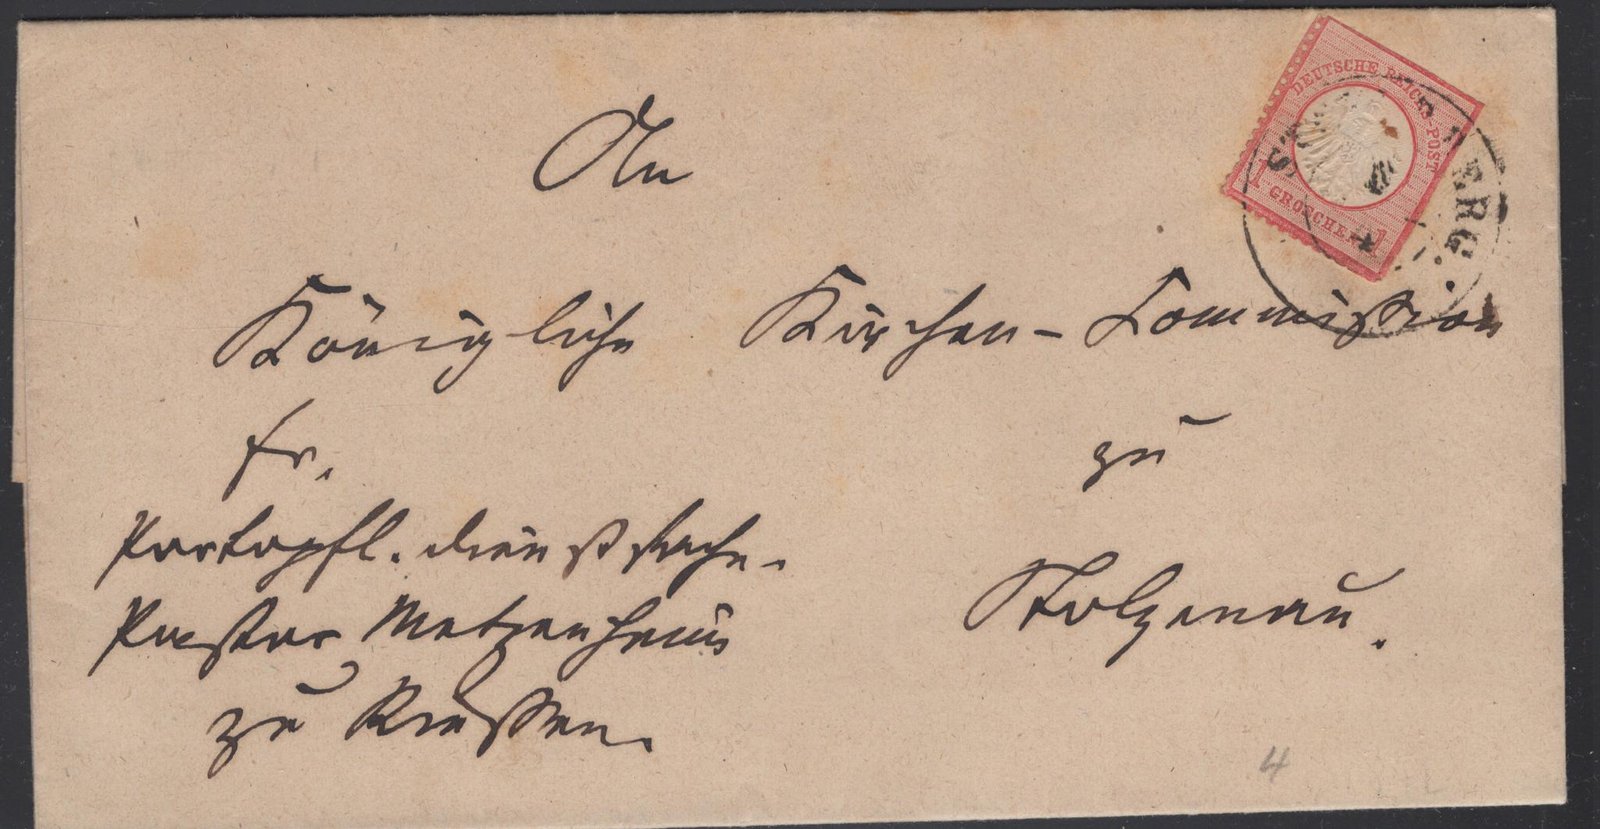 An
DEUTSCHE REICHS-POST
1 GROSCHEN 1
ERG.
Königliche Kirchen-Commission
fr.
zu
Portopfl. Dienstsache.
Stolzenau.
Pastor
zu
4